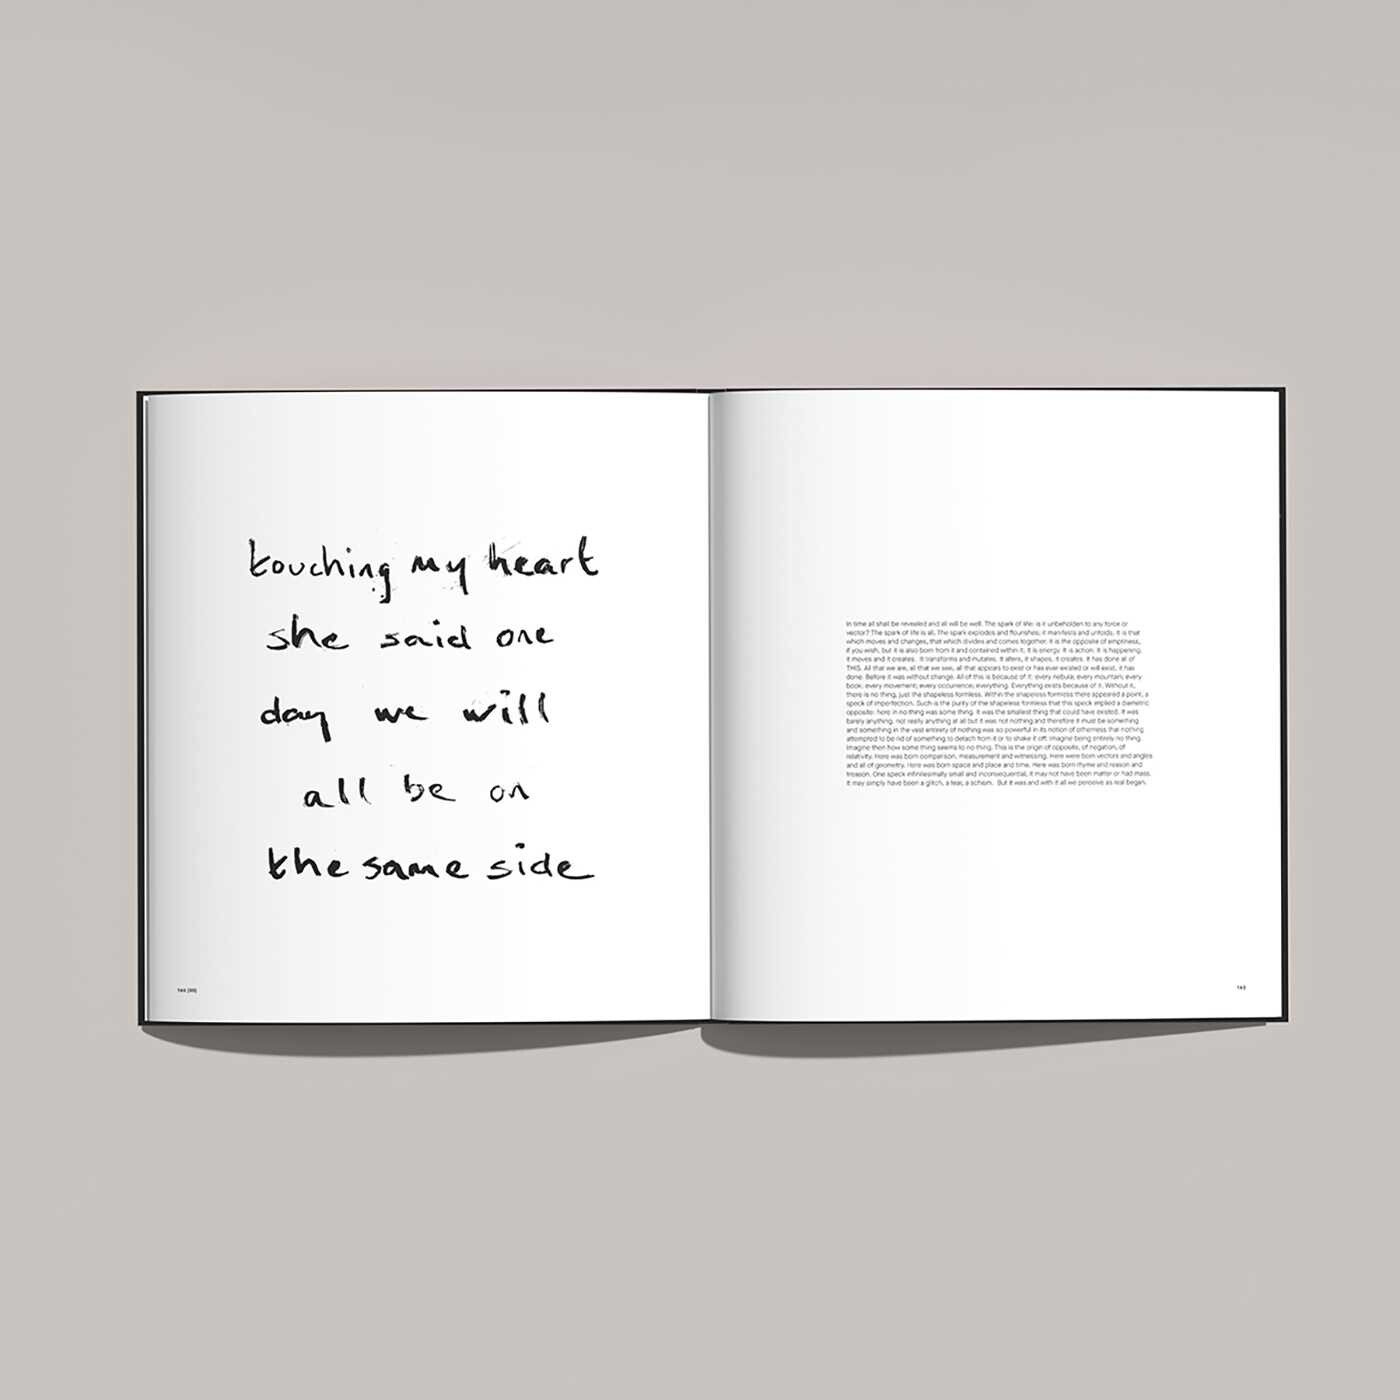 touching my heart
she said one
day we will
all be on
the same side
In time all shall be revealed and all will be well. The spark of life: is it unbeholden to any force or
vector? The spark of life is all. The spark explodes and flourishes; it manifests and unfolds. It is that
which moves and changes, that which divides and comes together. It is the opposite of emptiness,
if you wish, but it is also born from it and contained within it. It is energy. It is action. It is happening.
It moves and it creates. It transforms and mutates. It alters, it shapes, it creates. It has done all of
THIS. All that we are, all that we see, all that appears to exist or has ever existed or will exist, it has
done. Before it was without change. All of this is because of it: every nebula; every mountain; every
book; every movement; every occurrence; everything. Everything exists because of it. Without it,
there is no thing, just the shapeless formless. Within the shapeless formless there appeared a point, a
speck of imperfection. Such is the purity of the shapeless formless that this speck implied a diametric
opposite: here in no thing was some thing. It was the smallest thing that could have existed. It was
barely anything, not really anything at all but it was not nothing and therefore it must be something
and something in the vast entirety of nothing was so powerful in its notion of otherness that nothing
attempted to be rid of something to detach from it or to shake it off. Imagine being entirely no thing.
Imagine then how some thing seems to no thing. This is the origin of opposite, of negation, of
relativity. Here was born comparison, measurement and witnessing. Here were born vectors and angles
and all of geometry. Here was born space and place and time. Here was born rhyme and reason and
treason. One speck infinitesimally small and inconsequential, it may not have been matter or had mass.
It may simply have been a glitch, a tear, a schism. But it was and with it all we perceive as real began.
143